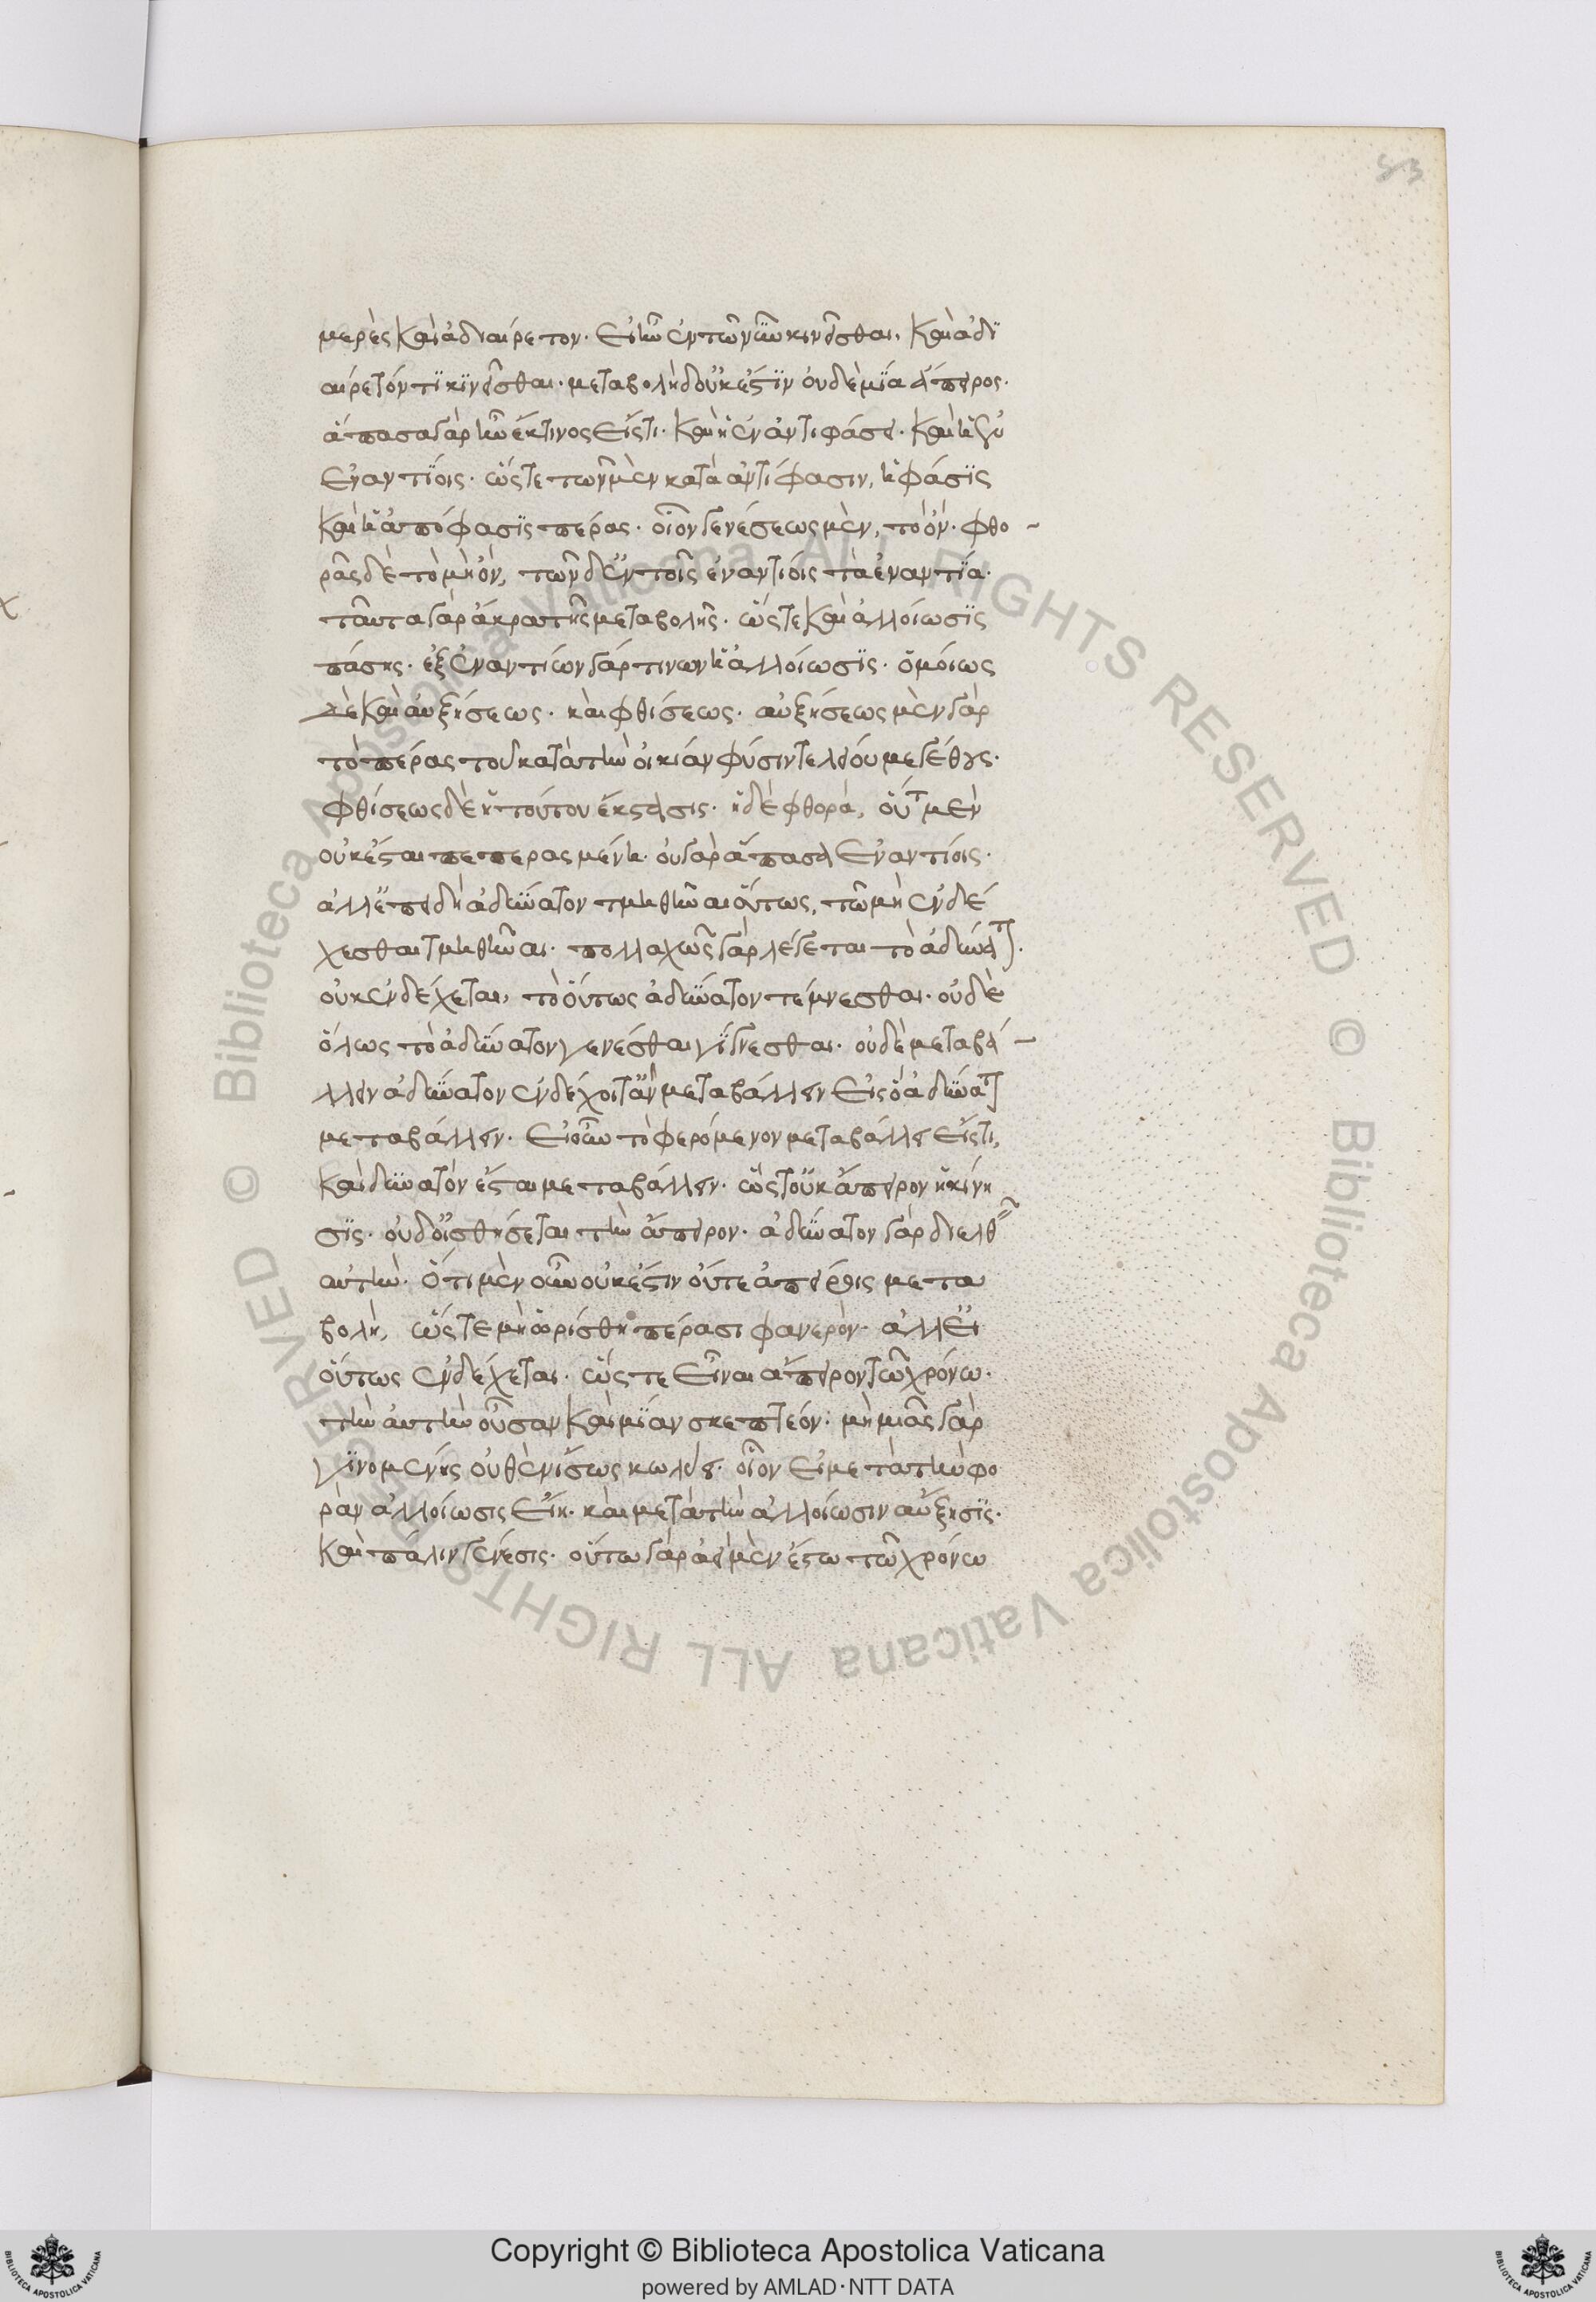 83
μερὲς καὶ ἀδιαίρετον. εἰ ἦν ἐν τῶ νῦν κινεῖσθαι, καὶ ἀδϊ
αίρετόν τϊ κϊνεῖσθαι. μεταβολὴ δ' οὐκ ἔστϊν οὐδεμΐα ἄπειρος.
ἅπασα γὰρ ἦν ἔκ τινος εἴς τι. καὶ ἡ ἐν ἀντιφάσει. καὶ ἡ ἐν
ἐναντΐοις. ὥστε τῶν μὲν κατὰ ἀντίφασιν, ἡ φάσϊς
καὶ ἡ ἀπόφασϊς πέρας. οἷον γενέσεως μὲν, τὸ ὄν. φθο-
ρᾶς δὲ τὸ μὴ ὄν, τῶν δ' ἐν τοῖς ἐναντίοις τὰ ἐναντΐα.
ταῦτα γὰρ ἄκρα τῆς μεταβολῆς. ὥστε καὶ ἀλλοίωσϊς
πάσης. ἐξ ἐναντίων γάρ τινων ἡ ἀλλοίωσϊς. ὁμοίως
δὲ καὶ αὐξήσεως. καὶ φθίσεως. αὐξήσεως μὲν γὰρ
τὸ πέρας τοῦ κατὰ τὴν οἰκίαν φύσιν τελείου μεγέθους.
φθίσεως δὲ ἡ τούτου ἔκστασις. ἡ δὲ φθορά, οὕτ μὲν
οὐκ ἔσται πεπερασμένη. οὐ γὰρ ἅπασα ἐναντίοις.
ἀλλ' ἐπειδὴ ἀδύνατον τμηθῆναι οὕτως, τῶ μὴ ἐνδέ
χεσθαι τμηθῆναι. πολλαχῶς γὰρ λέγεται τὸ ἀδύνατ.
οὐκ ἐνδέχεται, τὸ οὕτως ἀδύνατον τέμνεσθαι. οὐδὲ
ὅλως τὸ ἀδύνατον γενέσθαι γΐγνεσθαι. οὐδὲ μεταβά-
λλειν ἀδύνατον ἐνδέχοιτ' ἂν μεταβάλλειν εἰς ὃ ἀδύνατ
μεταβάλλειν. εἰ οὖν τὸ φερόμενον μεταβάλλει εἴς τι,
καὶ δυνατὸν ἔσται μεταβάλλειν. ὥστ' οὐκ ἄπειρον ἡ κίνη
σϊς. οὐδ' οἰσθήσεται τὴν ἄπειρον. ἀδύνατον γὰρ διελθ
αὐτήν. ὅτι μὲν οὖν οὐκ ἔστιν οὕτε ἄπειρός τις μετα
βολὴ, ὥστε μὴ ὡρίσθη πέρασι φανερὸν. ἀλλ' εἰ
οὕτως ἐνδέχεται. ὥστε εἶναι ἄπειρον τῶ χρόνω.
τὴν αὐτὴν οὖσαν καὶ μΐαν σκεπτέον. μὴ μιᾶς γὰρ
γϊνομένης οὐθὲν ἴσως κωλύει. οἷον εἰ μετὰ τὴν φο
ρὰν ἀλλοίωσις εἴη. καὶ μετὰ τὴν ἀλλοίωσιν αὔξησϊς.
καὶ πάλιν γένεσις. οὕτω γὰρ ἀεὶ μὲν ἔστω τῶ χρόνω
Copyright © Biblioteca Apostolica Vaticana
powered by AMLAD·NTT DATA